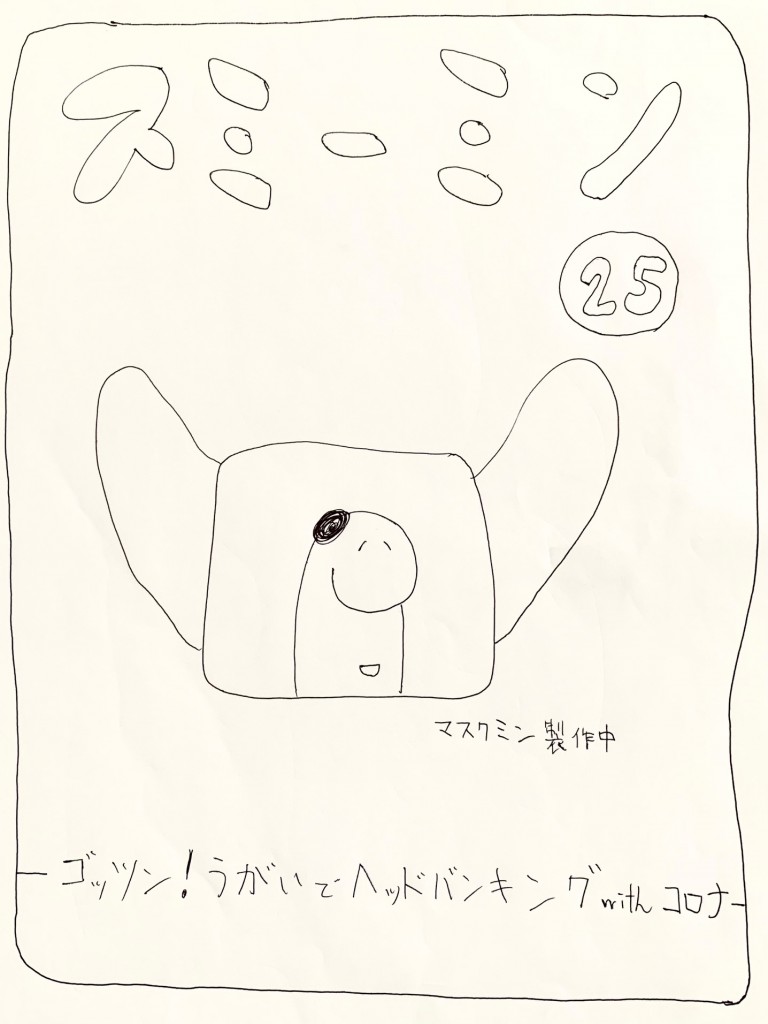 スミーミン
25
マスクミン製作中
ゴッツン!うがいでヘッドバンキングwithコロナ